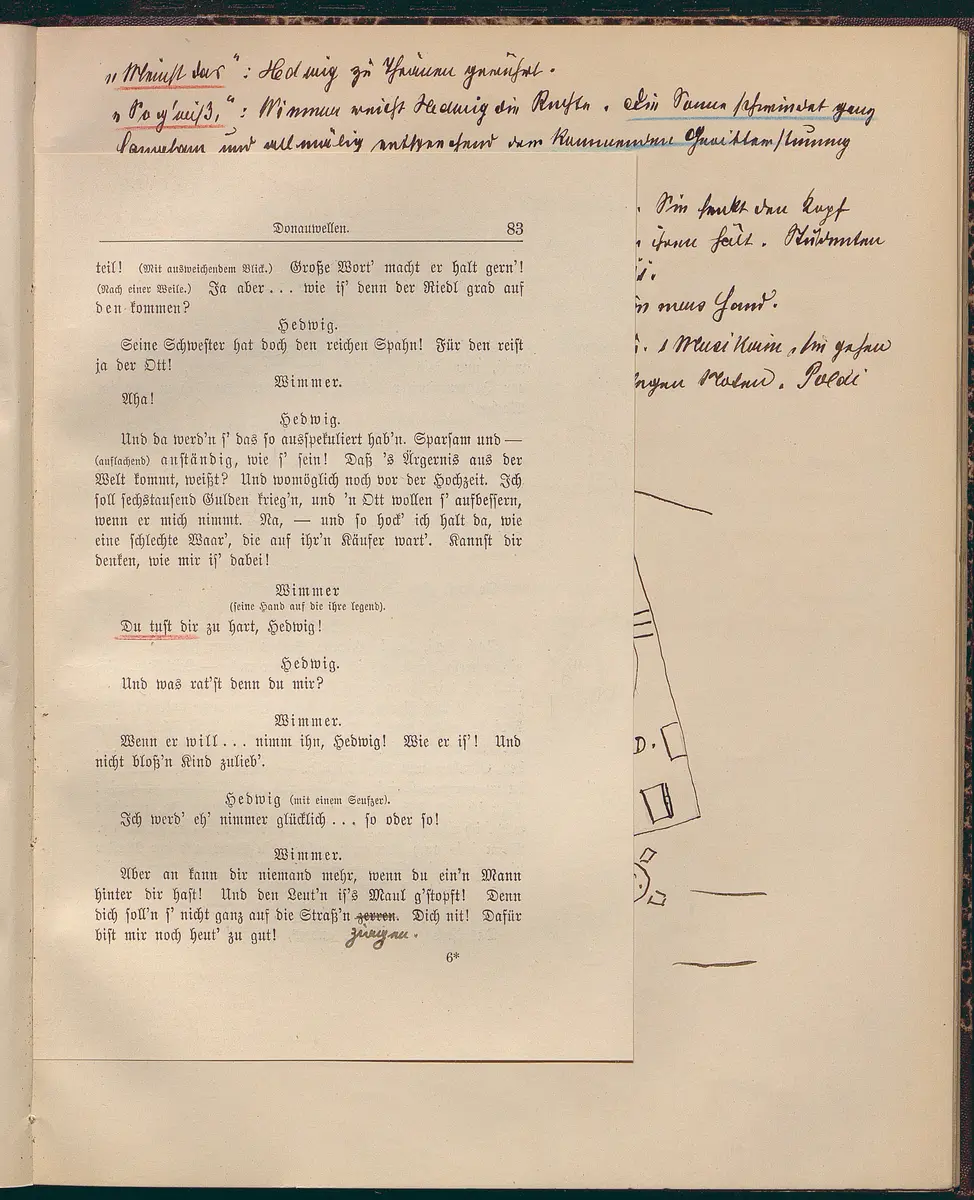 „Meinst das": Hedwig zu Thränen gerührt.
„So g'wiß,": Wimmer reicht Hedwig die Rechte. Die Sonne schwindet ganz
langsam und allmälig entsprechend der kommenden Gewitterstimmung
Sie senkt den Kopf
ihren hält. Studenten
Hand.
Musik
gehen
Noten. Poldi
D.
Donauwellen. 83
teil! (Mit ausweichendem Blick.) Große Wort' macht er halt gern'!
(Nach einer Weile.) Ja aber... wie is' denn der Riedl grad auf
den kommen?
Hedwig.
Seine Schwester hat doch den reichen Spahn! Für den reist
ja der Ott!
Wimmer.
Aha!
Hedwig.
Und da werd'n s' das so ausspekuliert hab'n. Sparsam und —
(auflachend) anständig, wie s' sein! Daß 's Ärgernis aus der
Welt kommt, weißt? Und womöglich noch vor der Hochzeit. Ich
soll sechstausend Gulden krieg'n, und 'n Ott wollen s' aufbessern,
wenn er mich nimmt. Na, — und so hock' ich halt da, wie
eine schlechte Waar', die auf ihr'n Käufer wart'. Kannst dir
denken, wie mir is' dabei!
Wimmer
(seine Hand auf die ihre legend).
Du tust dir zu hart, Hedwig!
Hedwig.
Und was rat'st denn du mir?
Wimmer.
Wenn er will... nimm ihn, Hedwig! Wie er is'! Und
nicht bloß'n Kind zulieb'.
Hedwig (mit einem Seufzer).
Ich werd' eh' nimmer glücklich... so oder so!
Wimmer.
Aber an kann dir niemand mehr, wenn du ein'n Mann
hinter dir hast! Und den Leut'n is's Maul g'stopft! Denn
dich soll'n s' nicht ganz auf die Straß'n zerren. Dich nit! Dafür
bist mir noch heut' zu gut!
6*